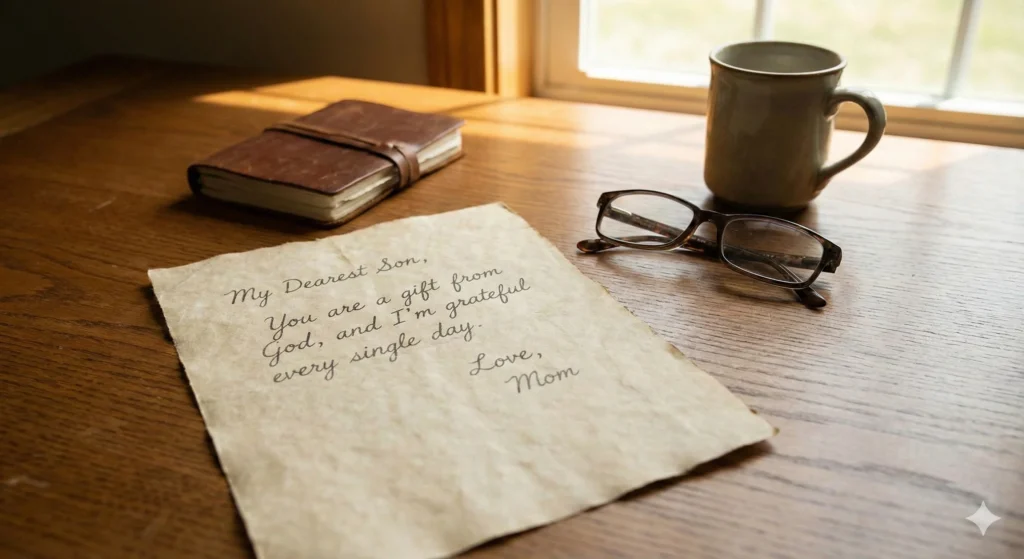 My Dearest Son,
You are a gift from
God, and I'm grateful
every single day.
Love,
Mom